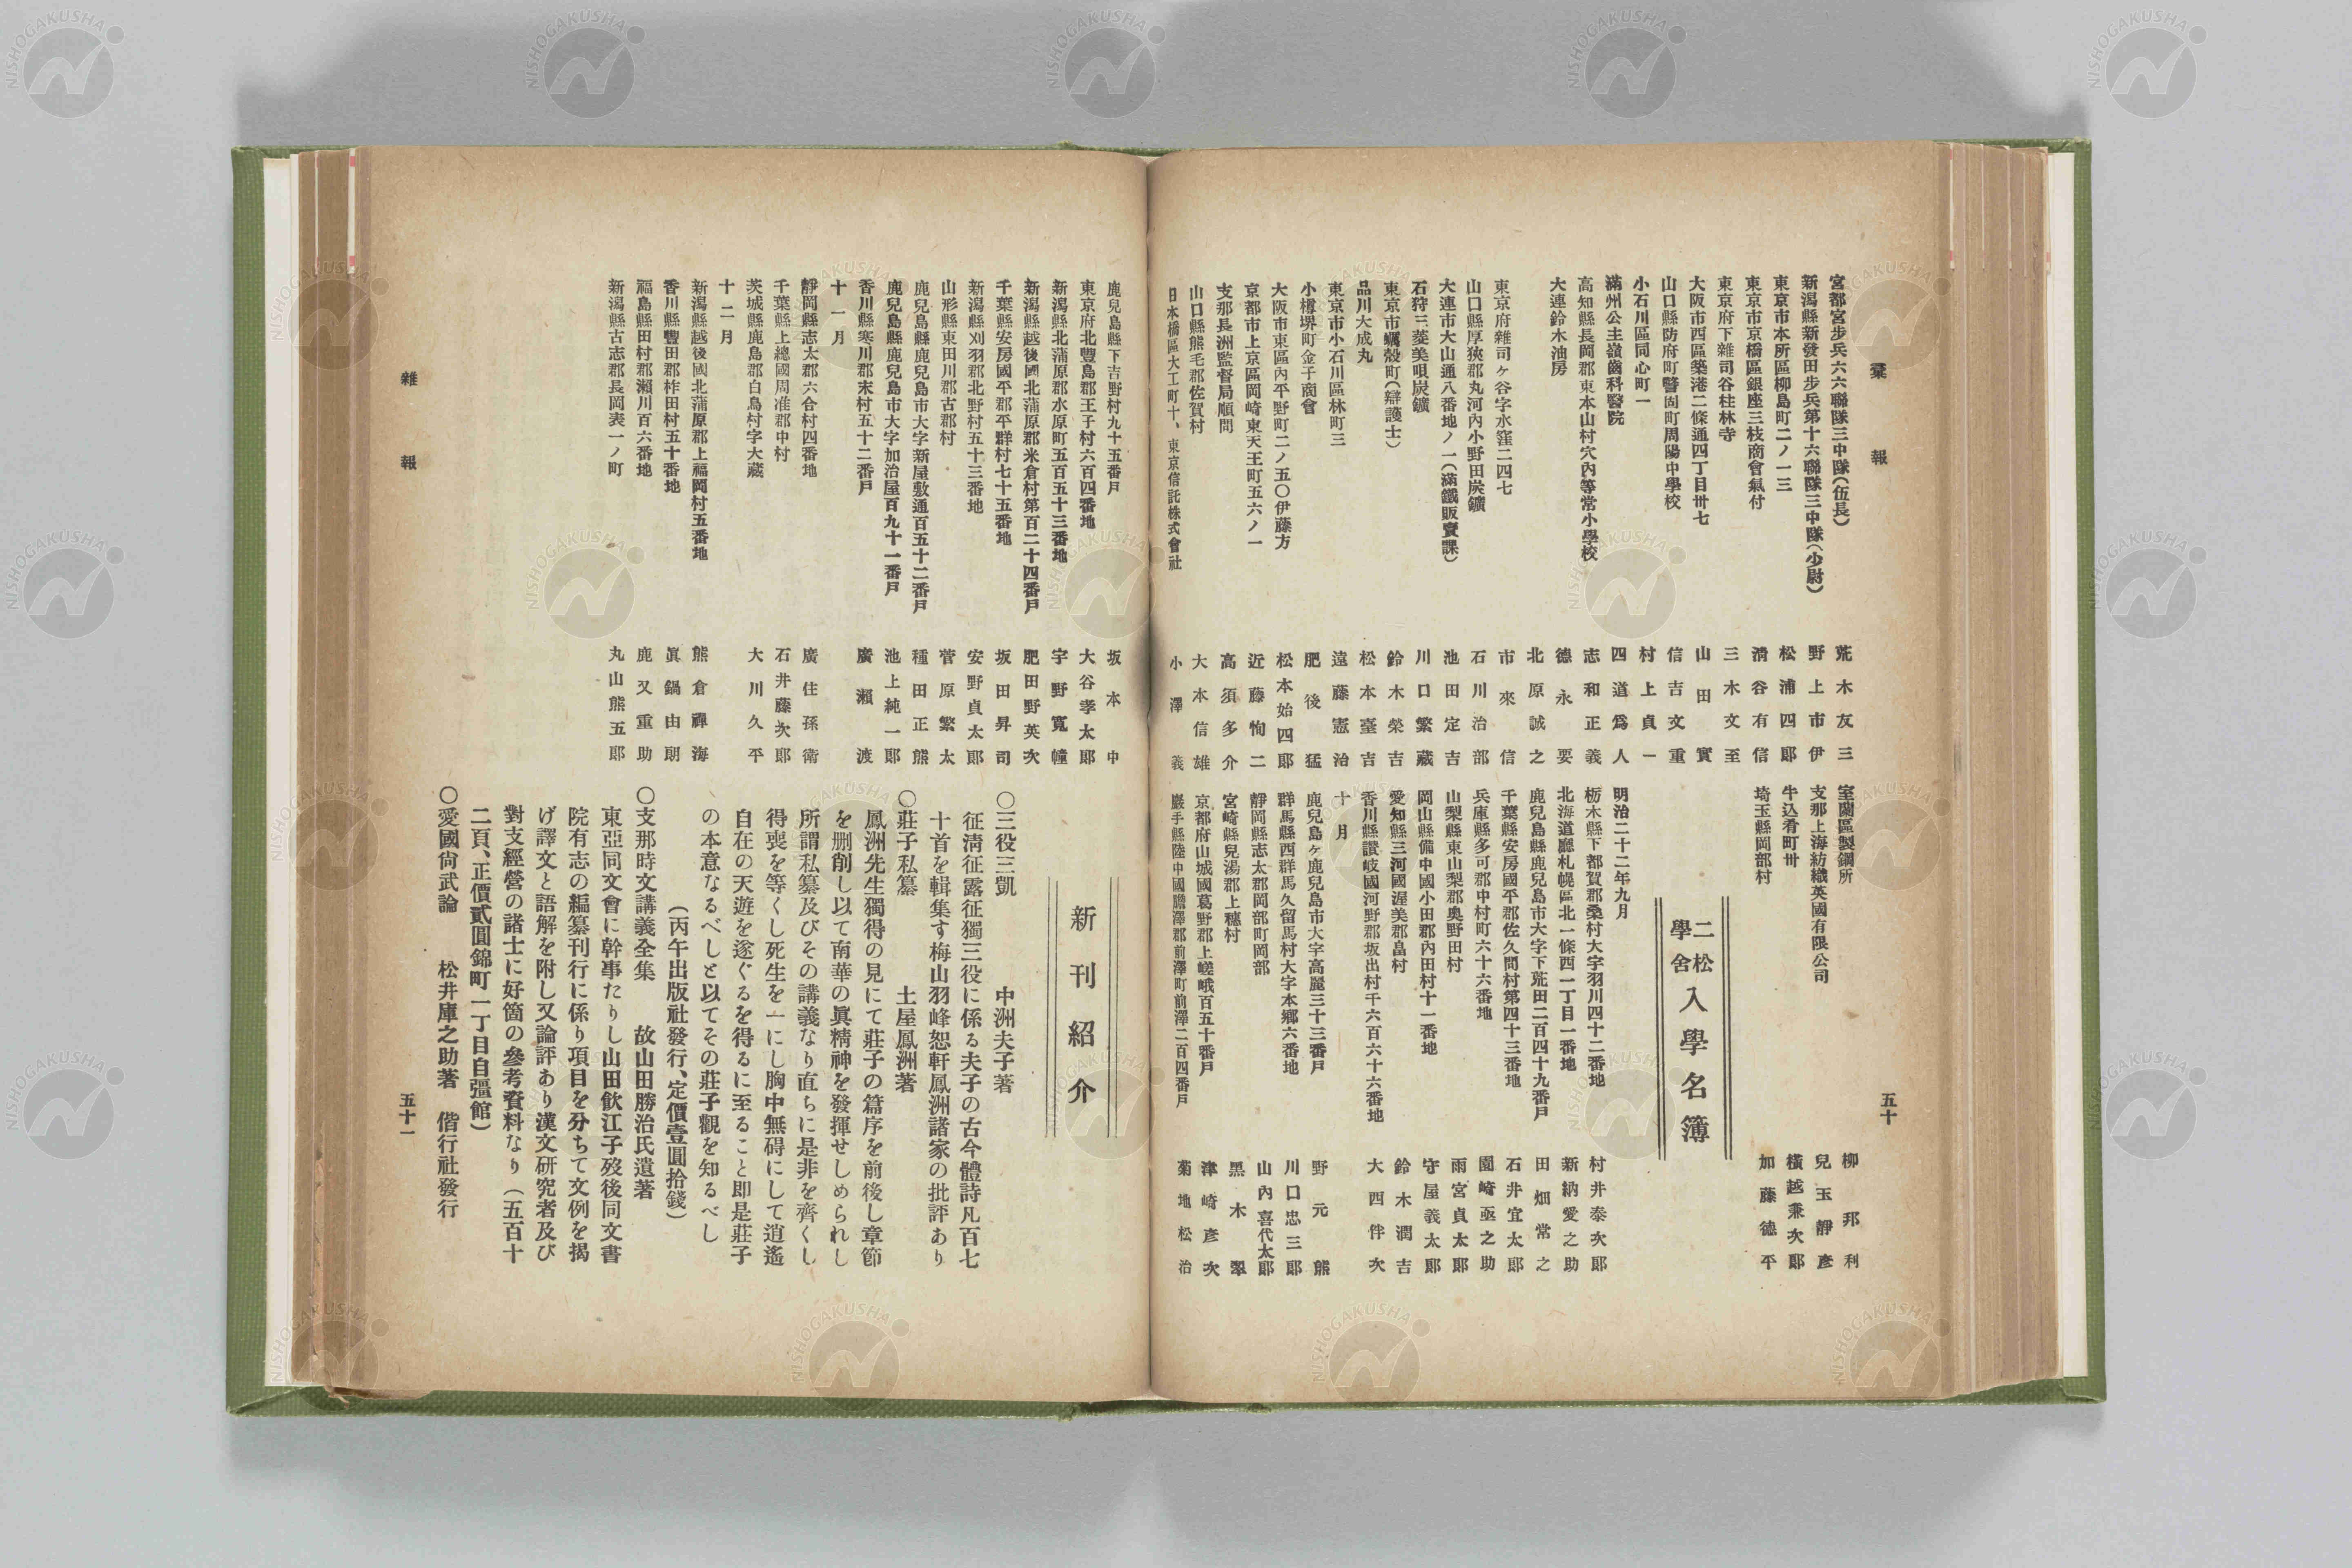 彙報
五十
宮都宮步兵六六聯隊三中隊(伍長) 荒木友三
新潟縣新發田步兵第十六聯隊三中隊(少尉) 野上市伊
東京市本所區柳島町二ノ一三 松浦四郎
東京市京橋區銀座三枝商會氣付 淸谷有信
東京府下雜司谷桂林寺 三木文至
大阪市西區築港二條通四丁目卅七 山田實
山口縣防府町警固町周陽中學校 信吉文重
小石川區同心町一 村上貞一
滿州公主嶺齒科醫院 四道爲人
高知縣長岡郡東本山村穴內等常小學校 志和正義
大連鈴木油房 德永要
北原誠之
東京府雜司ヶ谷字水窪二四七 市來信
山口縣厚狹郡丸河內小野田炭鑛 石川治部
大連市大山通八番地ノ一(滿鐵販賣課) 池田定吉
石狩三菱美唄炭鑛 川口繁藏
東京市蠣殼町(辯護士) 鈴木榮吉
品川大成丸 松本臺吉
東京市小石川區林町三 遠藤憲治
小樽堺町金子商會 肥後猛
大阪市東區內平野町二ノ五〇伊藤方 松本始四郎
京都市上京區岡崎東天王町五六ノ一 近藤恂二
支那長洲監督局顧問 高須多介
山口縣熊毛郡佐賀村 大木信雄
日本橋區大工町十、東京信託株式會社 小澤義
室蘭區製鋼所 柳邦利
支那上海紡織英國有限公司 兒玉靜彥
牛込肴町卅 橫越兼次郎
埼玉縣岡部村 加藤德平
二松學舍入學名簿
明治二十二年九月
栃木縣下都賀郡桑村大字羽川四十二番地 村井泰次郎
北海道廳札幌區北一條西一丁目一番地 新納愛之助
鹿兒島縣鹿兒島市大字下荒田二百四十九番戶 田畑常之
千葉縣安房國平郡佐久間村第四十三番地 石井宜太郎
兵庫縣多可郡中村町六十六番地 園崎亟之助
山梨縣東山梨郡奧野田村 雨宮貞太郎
岡山縣備中國小田郡內田村十一番地 守屋義太郎
愛知縣三河國渥美郡畠村 鈴木潤吉
香川縣讃岐國河野郡坂出村千六百六十六番地 大西伴次
十月
鹿兒島ヶ鹿兒島市大字高麗三十三番戶 野元熊
群馬縣西群馬久留馬村大字本鄕六番地 川口忠三郎
靜岡縣志太郡岡部町岡部 山內喜代太郎
宮崎縣兒湯郡上穗村 黑木翠
京都府山城國葛野郡上嵯峨百五十番戶 津崎彥次
巖手縣陸中國膽澤郡前澤町前澤二百四番戶 菊地松治
鹿兒島縣下吉野村九十五番戶 坂本中
東京府北豐島郡王子村六百四番地 大谷孝太郎
新潟縣北蒲原郡水原町五百五十三番地 宇野寬幢
新潟縣越後國北蒲原郡米倉村第百二十四番戶 肥田野英次
千葉縣安房國平郡平群村七十五番地 坂田昇司
新潟縣刈羽郡北野村五十三番地 安野貞太郎
山形縣東田川郡古郡村 菅原繁太
鹿兒島縣鹿兒島市大字新屋敷通百五十二番戶 種田正熊
鹿兒島縣鹿兒島市大字加治屋百九十一番戶 池上純一郎
香川縣寒川郡末村五十二番戶 廣瀨渡
十一月
靜岡縣志太郡六合村四番地 廣住孫衛
千葉縣上總國周准郡中村 石井藤次郎
茨城縣鹿島郡白鳥村字大藏 大川久平
十二月
新潟縣越後國北蒲原郡上福岡村五番地 熊倉禪海
香川縣豐田郡柞田村五十番地 眞鍋由朗
福島縣田村郡瀨川百六番地 鹿又重助
新潟縣古志郡長岡表一ノ町 丸山熊五郎
新刊紹介
〇三役三凱 中洲夫子著
征淸征露征獨三役に係る夫子の古今體詩凡百七
十首を輯集す梅山羽峰恕軒鳳洲諸家の批評あり
〇莊子私纂 土屋鳳洲著
鳳洲先生獨得の見にて莊子の篇序を前後し章節
を刪削し以て南華の眞精神を發揮せしめられし
所謂私纂及びその講義なり直ちに是非を齊くし
得喪を等くし死生を一にし胸中無碍にして逍遙
自在の天遊を遂ぐるを得るに至ること卽是莊子
の本意なるべしと以てその莊子觀を知るべし
(丙午出版社發行、定價壹圓拾錢)
〇支那時文講義全集 故山田勝治氏遺著
東亞同文會に幹事たりし山田飮江子歿後同文書
院有志の編纂刊行に係り項目を分ちて文例を揭
げ譯文と語解を附し又論評あり漢文硏究者及び
對支經營の諸士に好箇の參考資料なり(五百十
二頁、正價貳圓錦町一丁目自彊館)
〇愛國尙武論 松井庫之助著 偕行社發行
雜報
五十一
NISHOGAKUSHA